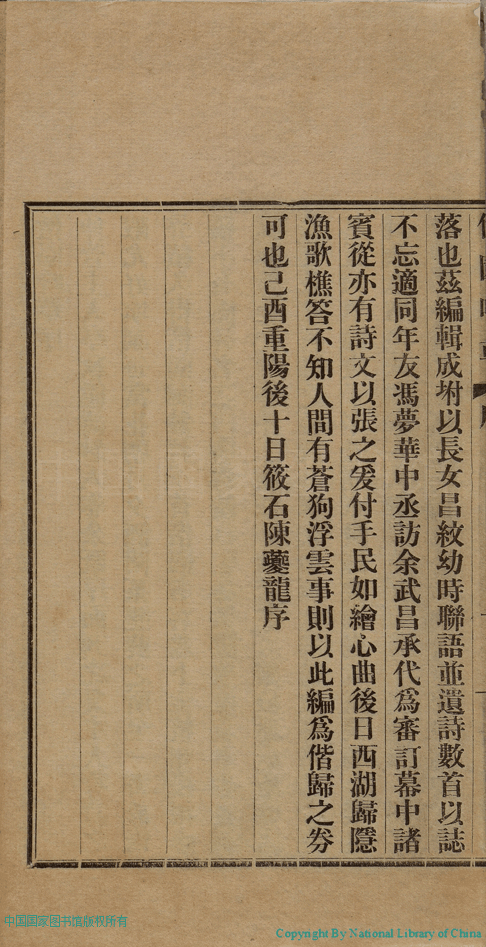 落也茲編輯成坿以長女昌紋幼時聯語並遺詩數首以誌
不忘適同年友馮夢華中丞訪余武昌承代爲審訂幕中諸
賓從亦有詩文以張之爰付手民如繪心曲後日西湖歸隱
漁歌樵答不知人間有蒼狗浮雲事則以此編爲偕歸之券
可也己酉重陽後十日筱石陳夔龍序
中国国家图书馆版权所有
Copyright By National Library of China